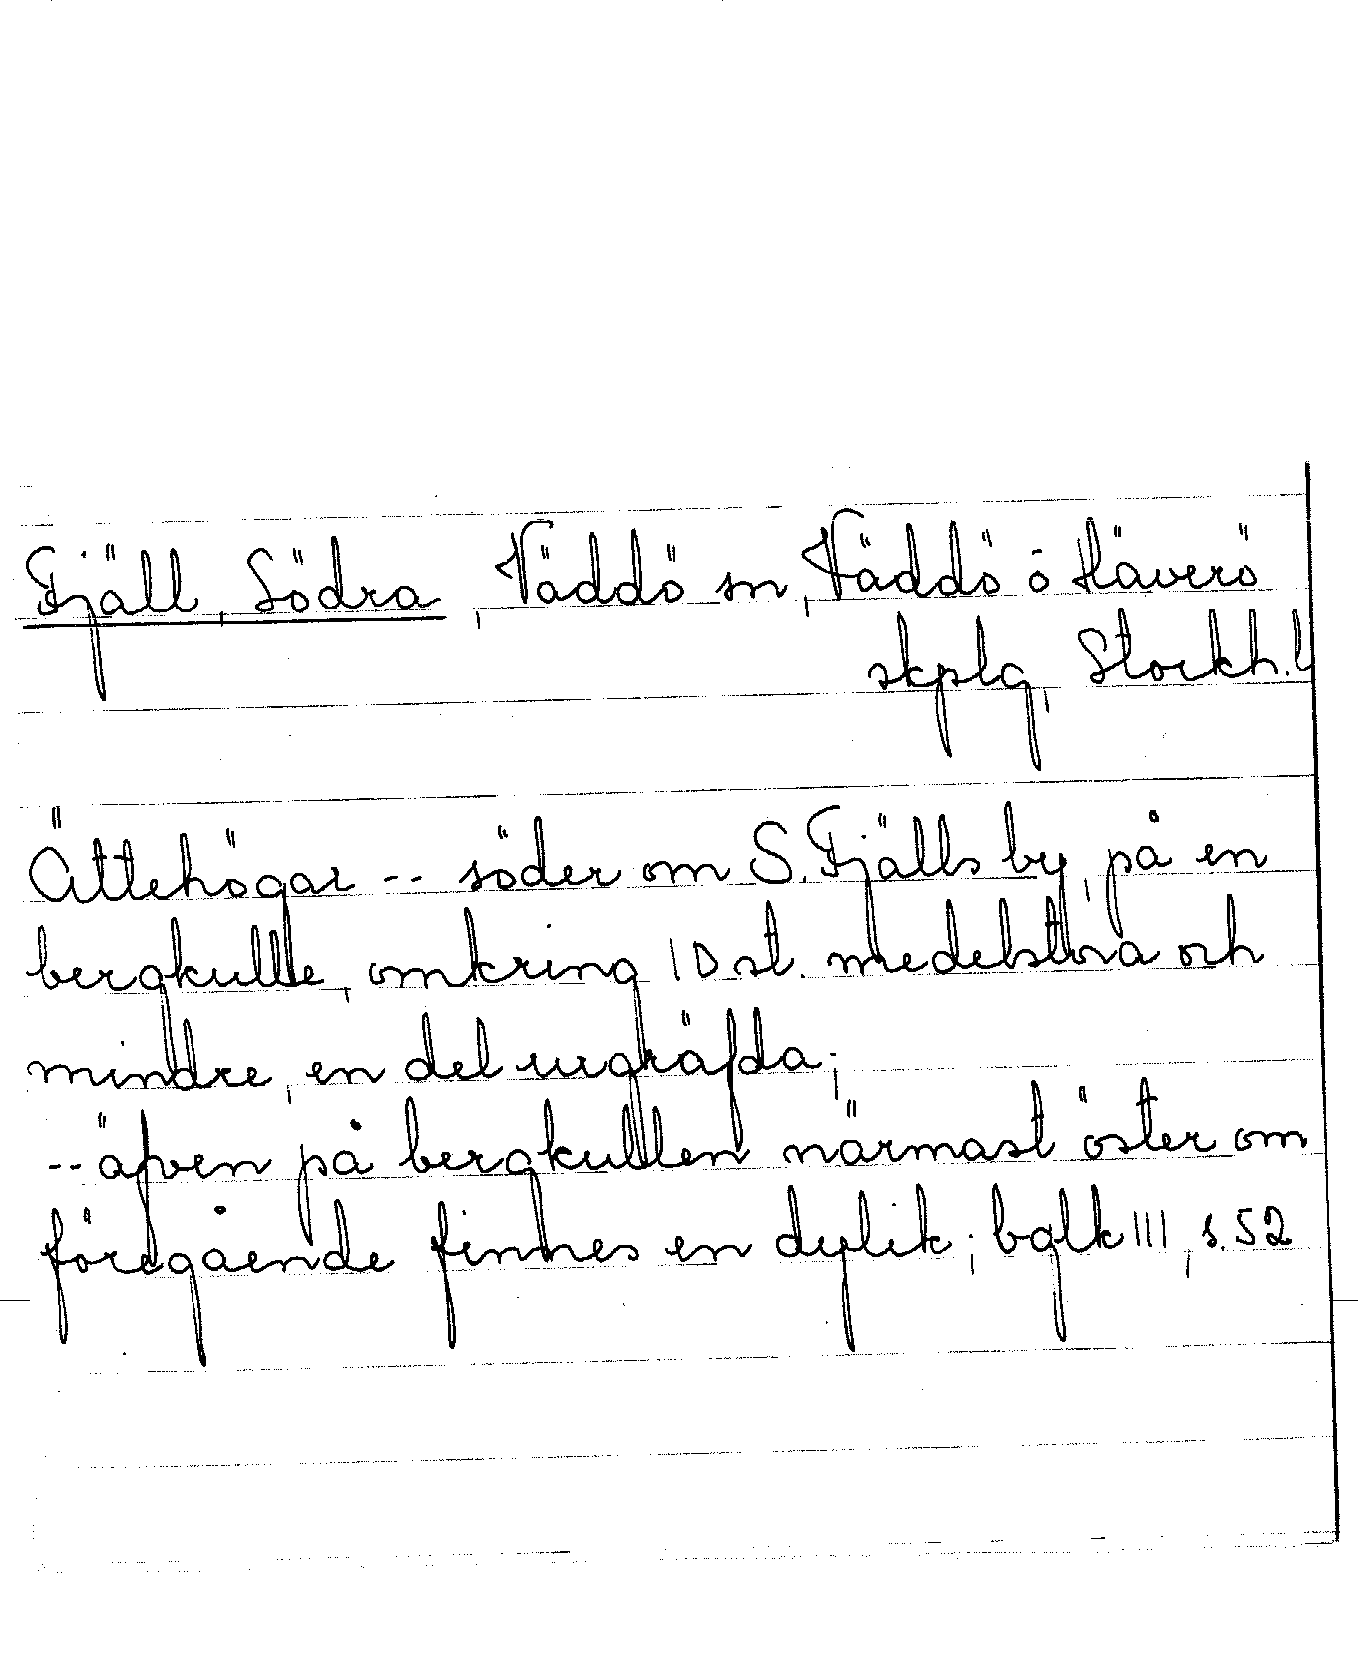 Fjäll, Södra, Väddö sn, Väddö o Häverö
skplg, Stockh.l
Ättehögar -- söder om S. Fjälls by, på en
bergkulle, omkring 10 st. medelstora och
mindre, en del urgräfda;
-- äfven på bergkullen närmast öster om
föregående finnes en dylik; bglk III, s. 52